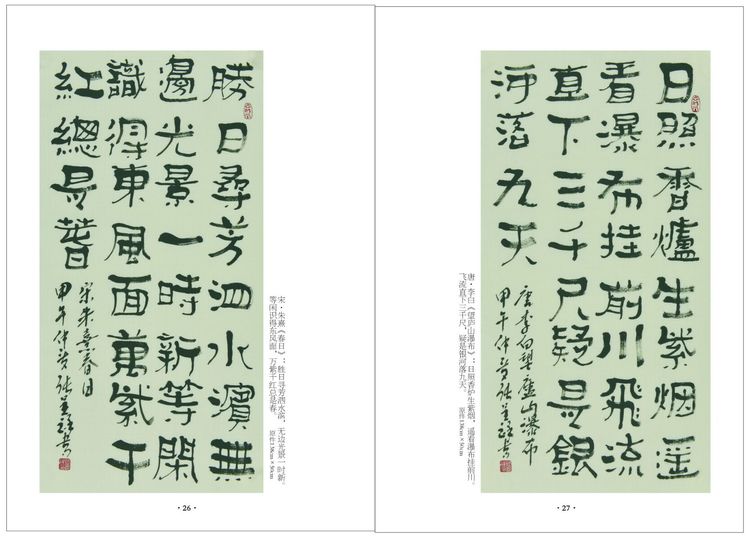 勝日尋芳泗水濱無
邊光景一時新等閑
識得東風面萬紫千
紅總是春
宋朱熹春日
甲午仲春張
宋·朱熹《春日》：胜日寻芳泗水滨，无边光景一时新。
等闲识得东风面，万紫千红总是春。 原件138cm×50cm
·26·
日照香爐生紫烟遥
看瀑布挂前川飛流
直下三千尺疑是銀
河落九天
唐李白望廬山瀑布
甲午仲春張
唐·李白《望庐山瀑布》：日照香炉生紫烟，遥看瀑布挂前川。
飞流直下三千尺，疑是银河落九天。 原件138cm×50cm
·27·